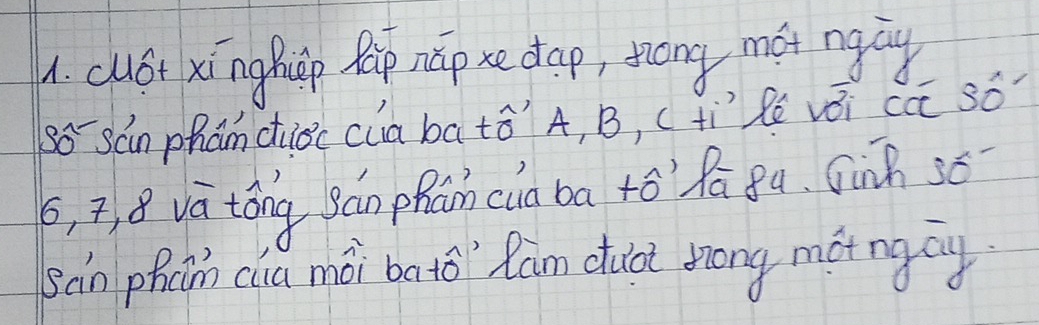 1. Một xí nghiệp lắp ráp xe đạp, trong một ngày
số sản phẩm được của ba tổ A, B, C tỉ lệ với các số
6, 7, 8 và tổng sản phẩm của ba tổ là 84. Tính số
sản phẩm của mỗi ba tổ làm được trong một ngày.